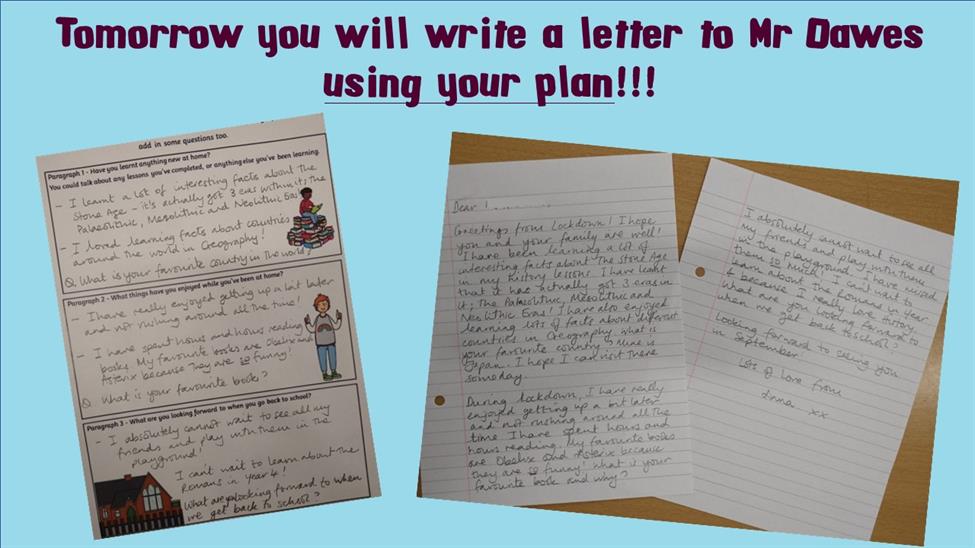 Tomorrow you will write a letter to Mr Dawes
using your plan!!!
add in some questions too.
Paragraph 1 - Have you learnt anything new at home?
You could talk about any lessons you've completed, or anything else you've been learning.
- I learnt a lot of interesting facts about the
Stone Age - it's actually got 3 eras within it; the
Palaeolithic, Mesolithic and Neolithic Eras!
- I loved learning facts about countries
around the world in Geography!
Q. What is your favourite country in the world?
Paragraph 2 - What things have you enjoyed while you've been at home?
- I have really enjoyed getting up a bit later
and not rushing around all the time!
- I have spent hours and hours reading
books. My favourite books are Obelix and
Asterix because they are so funny!
Q. What is your favourite book?
Paragraph 3 - What are you looking forward to when you go back to school?
- I absolutely cannot wait to see all my
friends and play with them in the
playground!
I can't wait to learn about the
Romans in Year 4!
What are you looking forward to when
we get back to school?
Dear
Greetings from Lockdown! I hope
you and your family are well!
I have been learning a lot of
interesting facts about the Stone Age
in my history lessons. I have learnt
that it has actually got 3 eras in
it; the Palaeolithic, Mesolithic and
Neolithic Eras! I have also enjoyed
learning lots of facts about different
countries in Geography. What is
your favourite country? Mine is
Japan. I hope I can visit there
someday.
During lockdown, I have really
enjoyed getting up a bit later
and not rushing around all the
time. I have spent hours and
hours reading. My favourite books
are Obelix and Asterix because
they are so funny! What is your
favourite book and why?
I absolutely cannot wait to see all
my friends and play with them
in the playground. I have missed
them so much! I can't wait to
learn about the Romans in Year
4 because I really love history.
What are you looking forward to
when we get back to school?
Looking forward to seeing you
in September!
Lots of love from
Anna xx